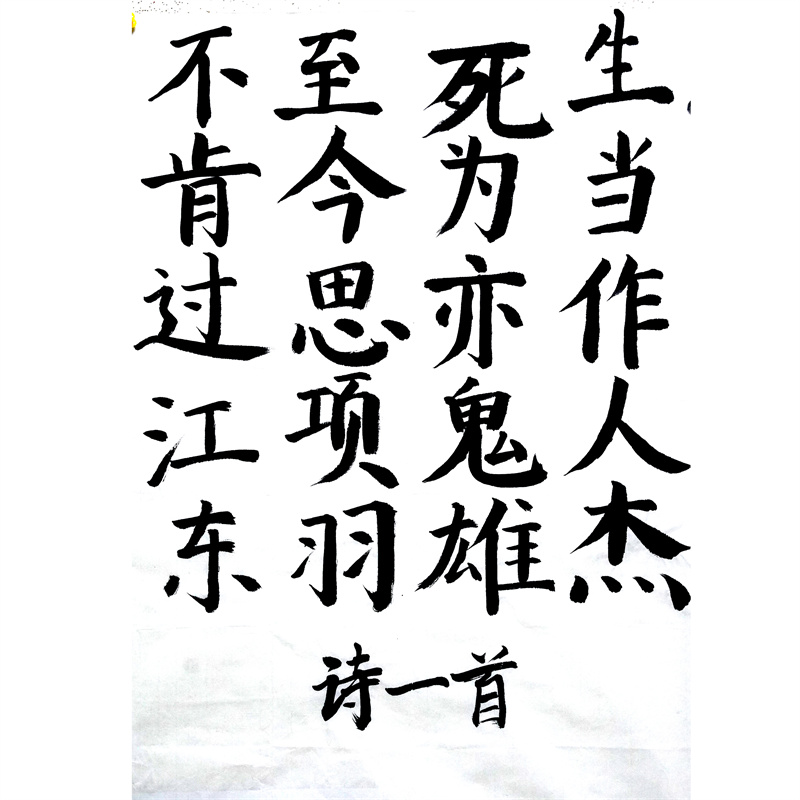 生当作人杰
死为亦鬼雄
至今思项羽
不肯过江东
诗一首